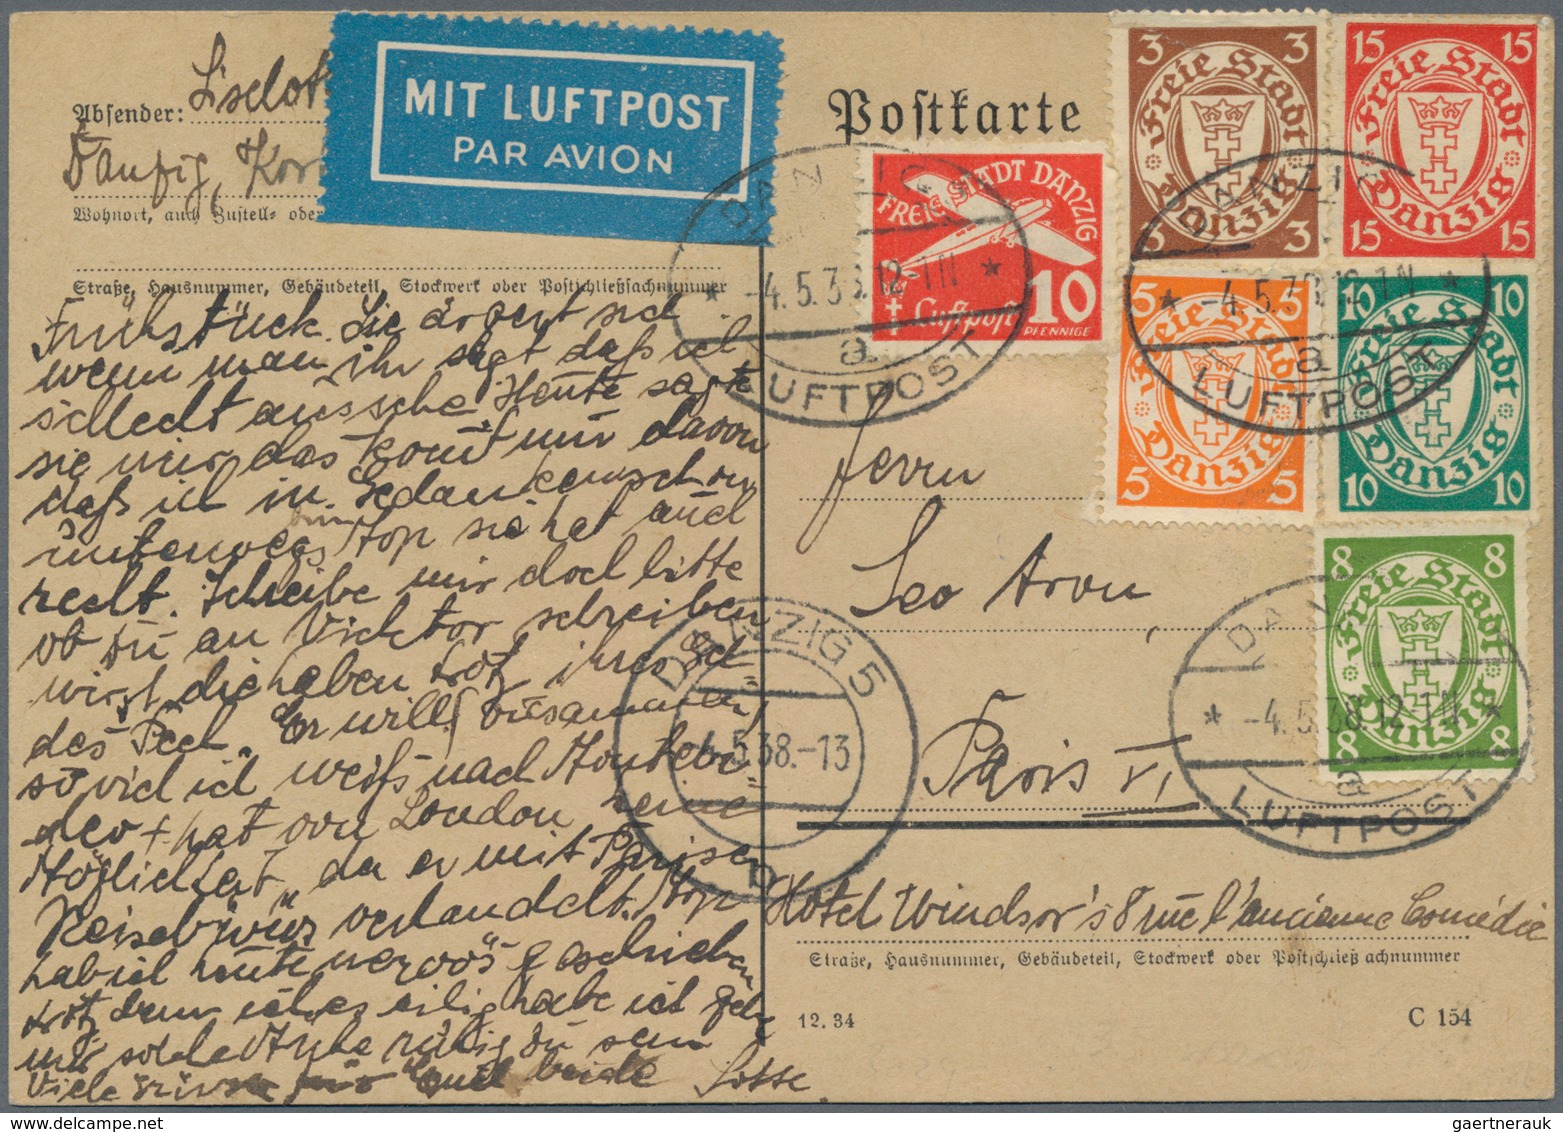 Absender: Liselot
Danzig, Kor
Wohnort, auch Zustell- oder
MIT LUFTPOST
PAR AVION
Postkarte
Straße, Hausnummer, Gebäudeteil, Stockwerk oder Postschließfachnummer
Frühstück. Sie ärgert sich
wenn man ihr sagt daß ich
schlecht aussehe. Heute sagte
sie mir das kommt nur davon
daß ich in Gedanken schon
unterwegs bin top sie hat auch
recht. Schreibe mir doch bitte
ob Du an Vicktor schreiben
wirst, die haben trotz ihres Gel-
des Pech. Er will zusammen
so viel ich weiß nach Montevi-
deo + hat von London keine
Möglichkeit, da er mit Pariser
Reisebüros verhandelt. top
hab ich heute nervös geschrieben
trotzdem ich es eilig habe ich gebe
mir solche Mühe ruhig zu sein
Viele Grüsse für Euch beide Lotte.
FREIE STADT DANZIG
10
PFENNIGE
Luftpost
3 3
Freie Stadt
Danzig
3 3
15 15
Freie Stadt
Danzig
15 15
5 5
Freie Stadt
Danzig
5 5
10 10
Freie Stadt
Danzig
10 10
8 8
Freie Stadt
Danzig
8 8
DANZIG
* -4.5.38.12-1N *
a
LUFTPOST
DANZIG
* -4.5.38.12-1N *
a
LUFTPOST
DANZIG
* -4.5.38.12-1N *
a
LUFTPOST
DANZIG 5
-4.5.38.-13
Herrn
Leo Aron,
Paris VI
Hotel Windsor's 8 rue l'ancienne Comédie
Straße, Hausnummer, Gebäudeteil, Stockwerk oder Postschließfachnummer
12. 34
C 154
gaertnerauk